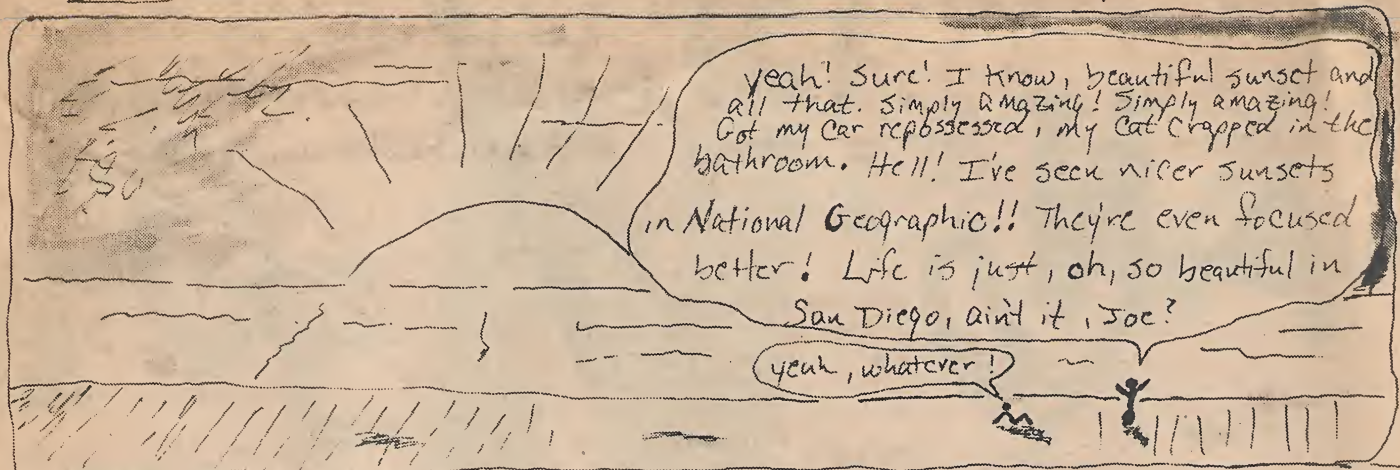 yeah! Sure! I know, beautiful sunset and
all that. Simply amazing! Simply amazing!
Got my car repossessed, my cat crapped in the
bathroom. Hell! I've seen nicer sunsets
in National Geographic!! They're even focused
better! Life is just, oh, so beautiful in
San Diego, ain't it, Joe?
yeah, whatever!